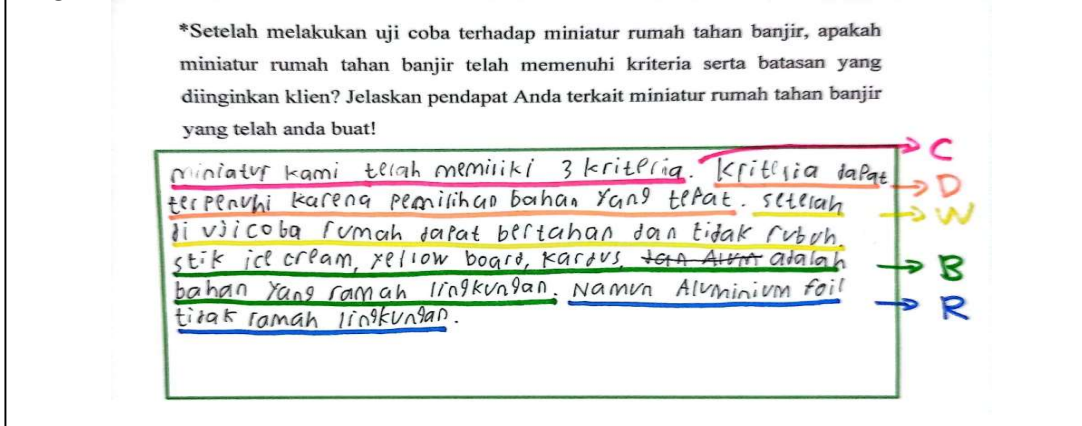 *Setelah melakukan uji coba terhadap miniatur rumah tahan banjir, apakah
miniatur rumah tahan banjir telah memenuhi kriteria serta batasan yang
diinginkan klien? Jelaskan pendapat Anda terkait miniatur rumah tahan banjir
yang telah anda buat!
miniatur kami telah memiliki 3 kriteria. Kriteria dapat
terpenuhi karena pemilihan bahan yang tepat. setelah
di ujicoba rumah dapat bertahan dan tidak rubuh.
stik ice cream, yellow board, kardus, dan Alum adalah
bahan yang ramah lingkungan. Namun Aluminium foil
tidak ramah lingkungan.
C
D
W
B
R